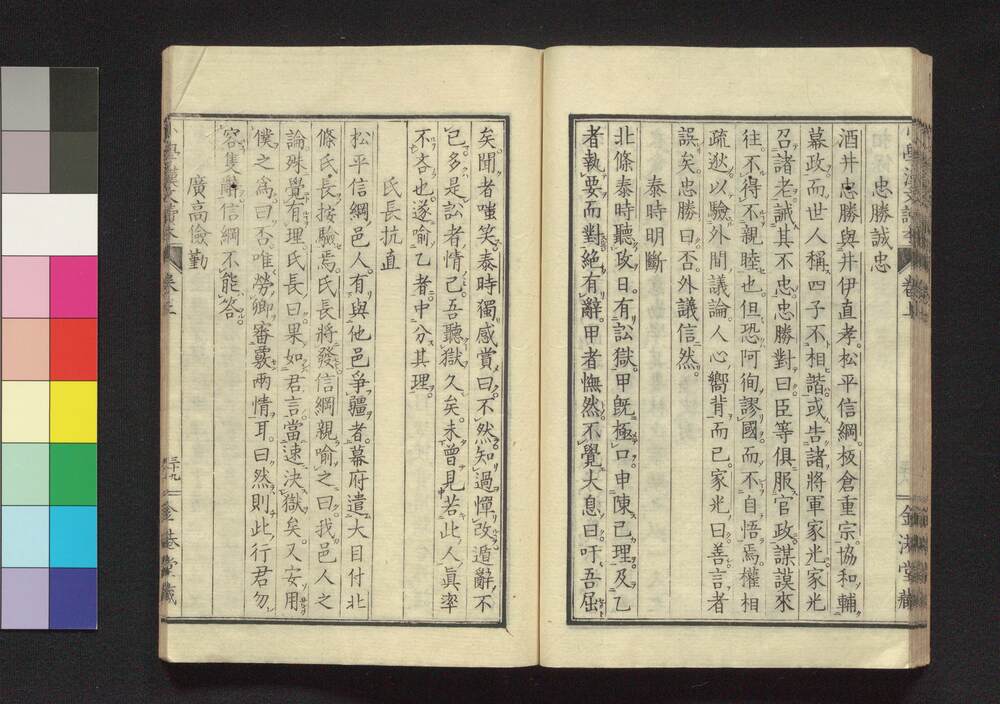 忠勝誠忠
酒井忠勝與井伊直孝。松平信綱。板倉重宗。協和輔
幕政而世人稱四子不相諧或告諸將軍家光。家光
召諸老誡其不忠忠勝對曰。臣等俱服官政謀謨來
往不得不親睦也。但恐阿徇謬國而不自悟焉。權相
疏逖以驗外間議論人心嚮背而已。家光曰善言者
誤矣。忠勝曰。否。外議信然。
泰時明斷
北條泰時聽政。日有訟獄。甲既極口申陳己理。及乙
者執要而對絕有辭。甲者憮然。不覺大息曰。吁。吾屈
矣。聞者嗤笑。泰時獨感賞曰。不然。知過憚改遁辭不
已多是訟者情已。吾聽獄久矣。未曾見若此人眞率
不吝也。遂喻乙者中分其理。
氏長抗直
松平信綱邑人。有與他邑爭疆者。幕府遣大目付北
條氏長按驗焉。氏長將發。信綱親喻之曰。我邑人之
論殊覺有理。氏長曰。果如君言。當速決獄矣。又安用
僕之爲。曰。否。唯勞卿審覈兩情耳。曰。然則此行君勿
容隻辭。信綱不能答。
廣高儉勤
卷上
三十九
金港堂藏
金港堂藏